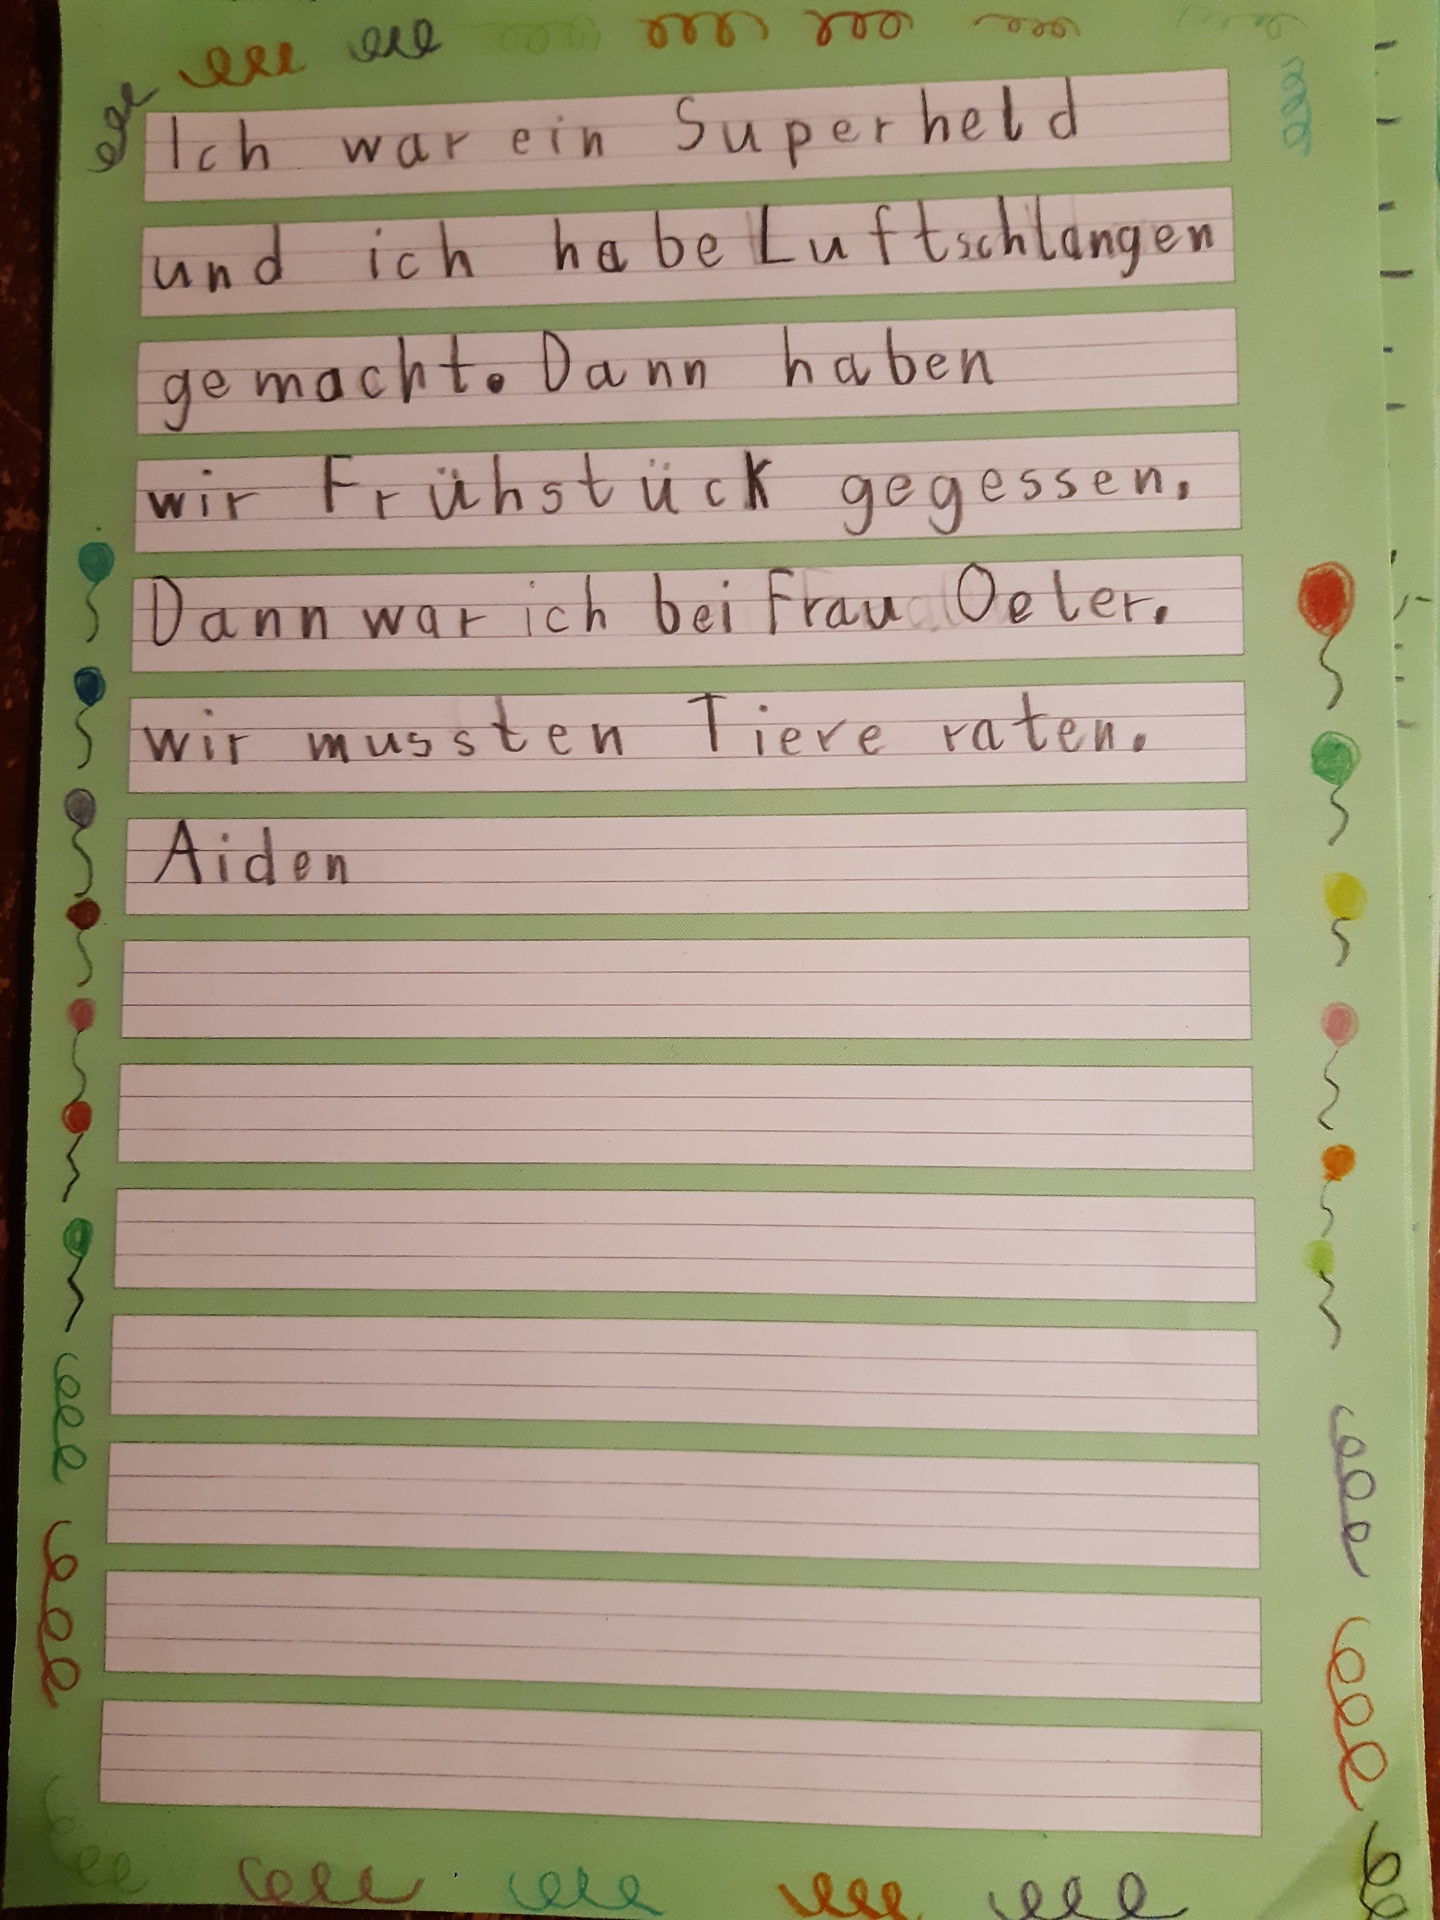 Ich war ein Superheld
und ich habe Luftschlangen
gemacht. Dann haben
wir Frühstück gegessen.
Dann war ich bei Frau Oeler.
wir mussten Tiere raten.
Aiden